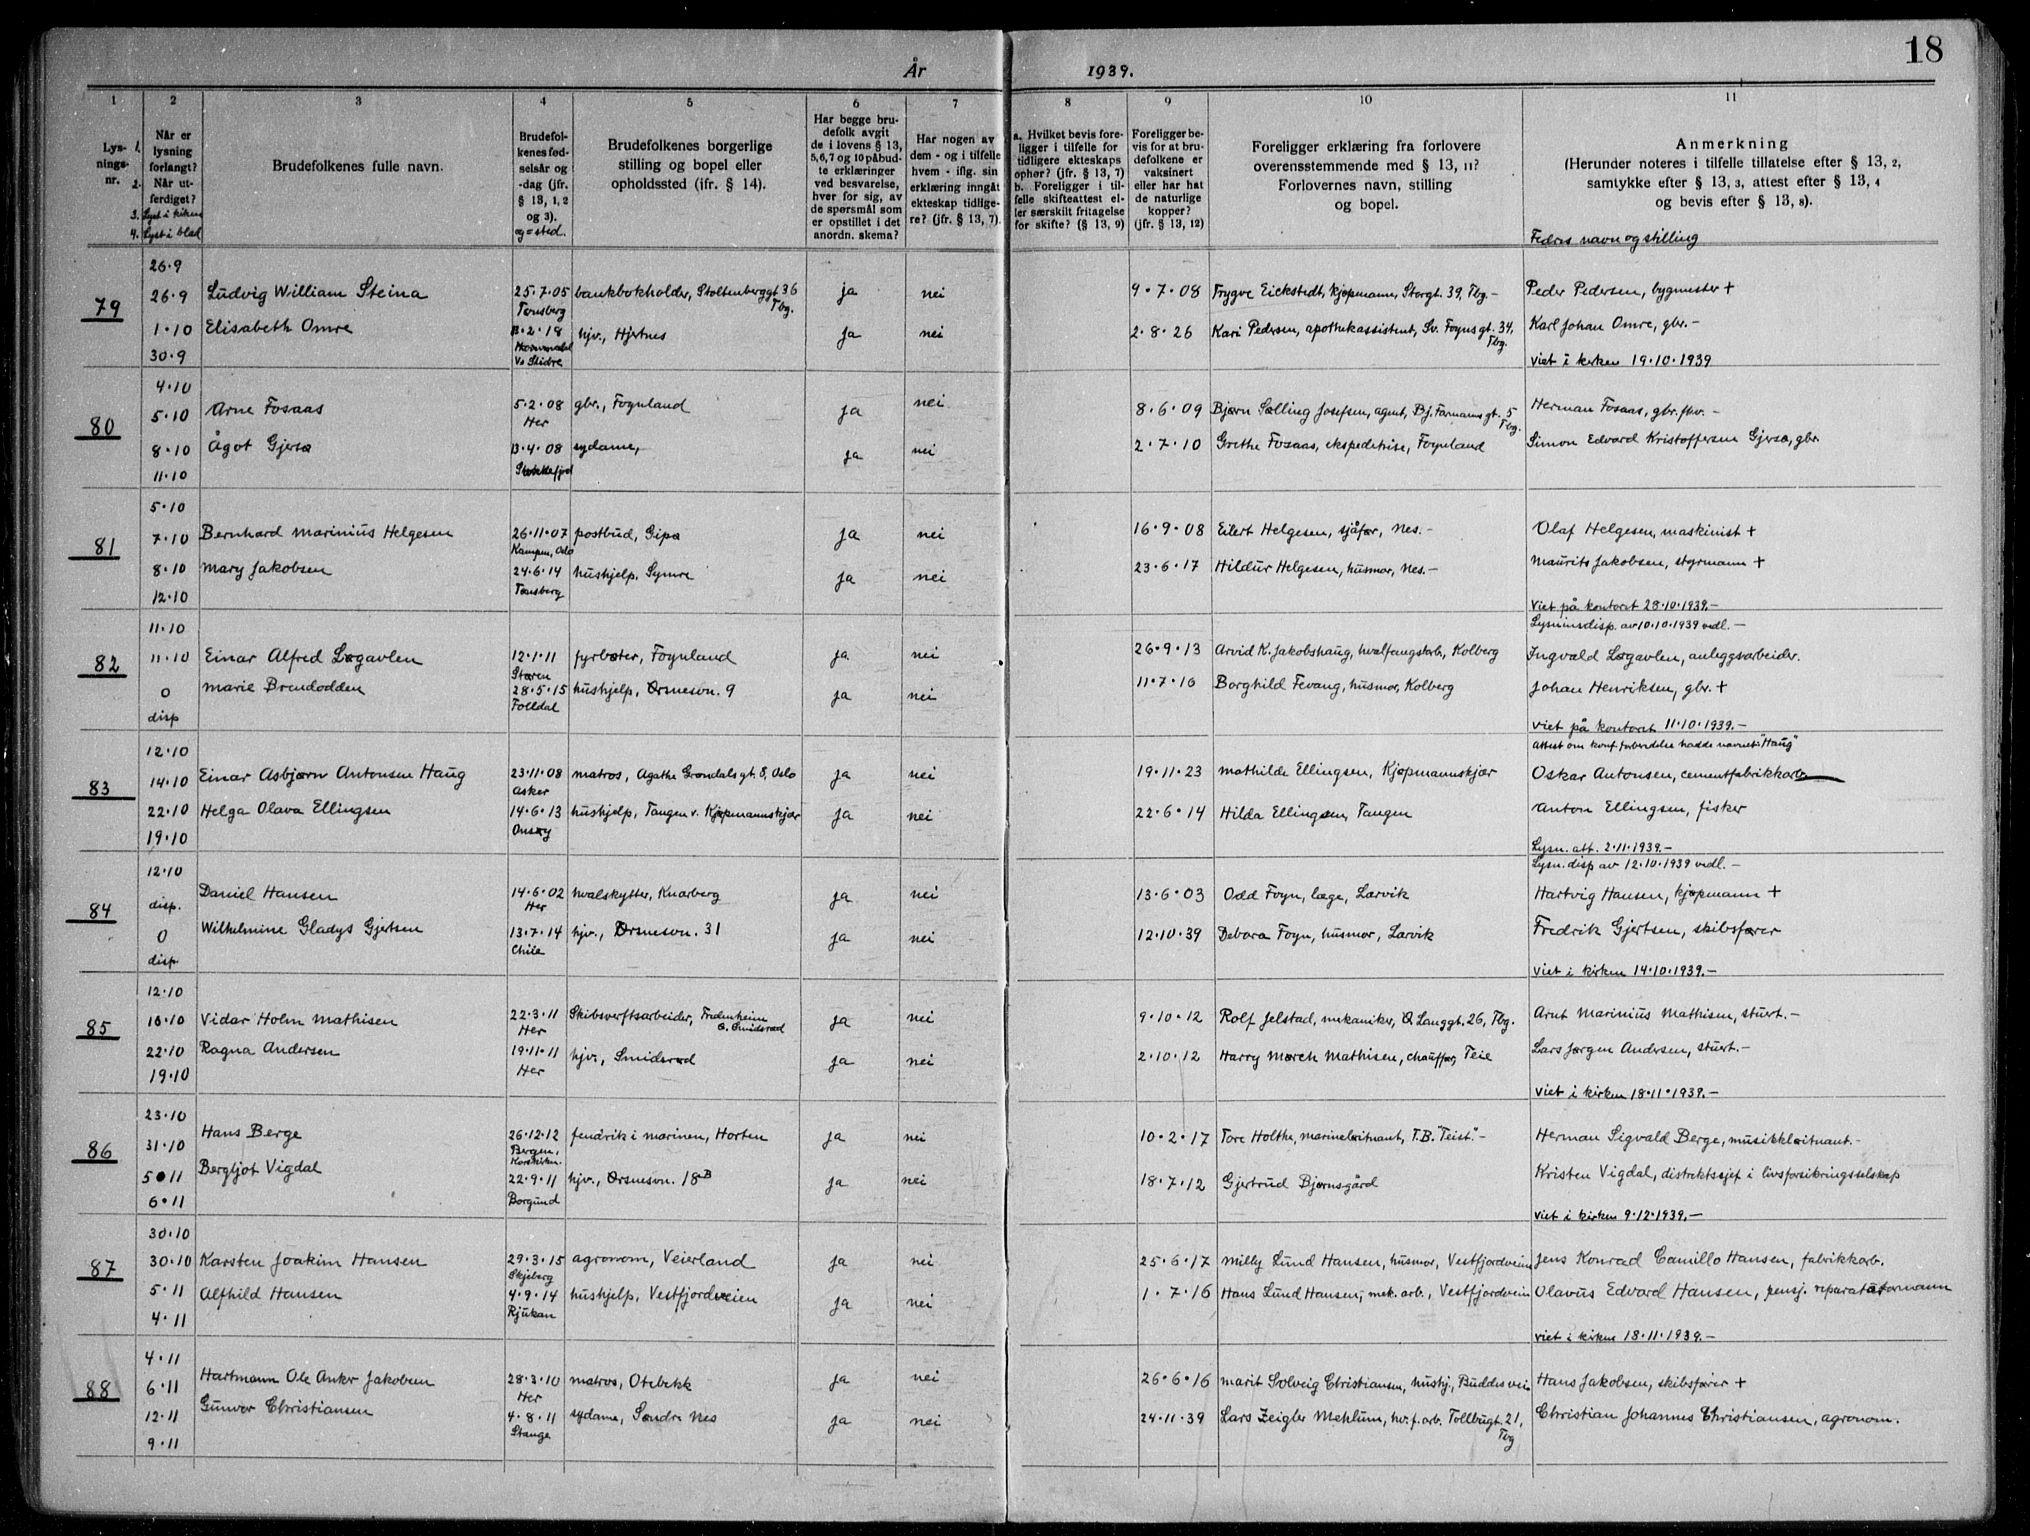 18
År 1939.
1 2 3 4 5 6 7 8 9 10 11
Lys-
nings-
nr.
1.
2.
3.
4.
Når er
lysning
forlangt?
Når ut-
ferdiget?
Lyst i kirken
Lyst i blad
Brudefolkenes fulle navn.
Brudefol-
kenes fød-
selsår og
-dag (jfr.
§ 13, 1, 2
og 3).
og = sted.
Brudefolkenes borgerlige
stilling og bopel eller
opholdssted (jfr. § 14).
Har begge bru-
defolk avgit
de i lovens § 13,
5, 6, 7 og 10 påbud-
te erklæringer
ved besvarelse,
hver for sig, av
de spørsmål som
er opstillet i det
anordn. skema?
Har nogen av
dem - og i tilfelle
hvem - iflg. sin
erklæring inngått
ekteskap tidlige-
re? (jfr. § 13, 7).
a. Hvilket bevis fore-
ligger i tilfelle for
tidligere ekteskaps
ophør? (jfr. § 13, 7)
b. Foreligger i til-
felle skifteattest el-
ler særskilt fritagelse
for skifte? (§ 13, 9)
Foreligger be-
vis for at bru-
defolkene er
vaksinert
eller har hat
de naturlige
kopper?
(jfr. § 13, 12)
Foreligger erklæring fra forlovere
overensstemmende med § 13, 11?
Forlovernes navn, stilling
og bopel.
Anmerkning
(Herunder noteres i tilfelle tillatelse efter § 13, 2,
samtykke efter § 13, 3, attest efter § 13, 4
og bevis efter § 13, 8).
Fedres navn og stilling
26.9
79 26.9 Ludvig William Steina 25.7.05 bankbokholder, Stoltenberggt 36 ja nei 9.7.08 Trygve Eickstedt, kjøpmann, Storgt. 39, Tbg.- Peder Pedersen, bygmester +
Tønsberg Tbg.
1.10 Elisabeth Omre 13.2.18 hjv., Hjertnes ja nei 2.8.26 Kari Pedersen, apothekassistent, Sv. Foynsgt. 34, Karl Johan Omre, gbr.-
Tbg.
30.9 V. Slidre viet i kirken 19.10.1939
4.10
80 5.10 Arne Fosaas 5.2.08 gbr., Foynland ja nei 8.6.09 Bjørn Sølling Josefsen, agent, Bj. Farmanns gt. 5 Herman Fosaas, gbr. fhv.-
Her Tbg.
8.10 Ågot Gjersø 13.4.08 sydame, ja nei 2.7.10 Grethe Fosaas, ekspeditrise, Foynland Simon Edvard Kristoffersen Gjersø, gbr.
11.10
5.10
81 7.10 Bernhard Marinius Helgesen 26.11.07 postbud, Gipø ja nei 16.9.08 Eilert Helgesen, sjåfør, Nes.- Olaf Helgesen, maskinist +
Kampen, Oslo
8.10 Mary Jakobsen 24.6.14 hushjelp, Symre ja nei 23.6.17 Hildur Helgesen, husmor, Nes.- Maurits Jakobsen, styrmann +
Tønsberg
12.10 Viet på kontoret 28.10.1939.-
11.10 Lysningsdisp. av 10.10.1939 vedl.-
82 11.10 Einar Alfred Løgavlen 12.1.11 fyrbøter, Foynland ja nei 26.9.13 Arvid K. Jakobshaug, hvalfangstarb, Kolberg Ingvald Løgavlen, anleggsarbeider.
Støren
0 Marie Brendodden 28.5.15 hushjelp, Ørsnesvn. 9 ja nei 11.7.16 Borghild Tevang, husmor, Kolberg Johan Henriksen, gbr. +
Folldal
disp viet på kontoret 11.10.1939.-
12.10 attest om konf. forberedelse hadde navnet "Haug"
83 14.10 Einar Asbjørn Antonsen Haug 23.11.08 matros, Agathe Grøndals gt. 8, Oslo ja nei 19.11.23 Mathilde Ellingsen, Kjøpmannskjær Oskar Antonsen, cementfabrikkarb.
Asker
22.10 Helga Olava Ellingsen 14.6.13 hushjelp, Tangen v. Kjøpmannskjær ja nei 22.6.14 Hilda Ellingsen, Tangen Anton Ellingsen, fisker
Onsøy
19.10 Lysn. att. 2.11.1939.-
12.10 Lysn. disp av 12.10.1939 vedl.-
84 disp. Daniel Hansen 14.6.02 hvalskytter, Knarberg ja nei 13.6.03 Odd Foyn, læge, Larvik Hartvig Hansen, kjøpmann +
Her
0 Wilhelmine Gladys Gjertsen 13.7.14 hjv., Ørsnesvn. 31 ja nei 12.10.39 Debora Foyn, husmor, Larvik Fredrik Gjertsen, skibsfører
Chile
disp viet i kirken 14.10.1939.-
12.10
85 16.10 Vidar Holm Mathisen 22.3.11 Skibsverftsarbeider, Fredenheim ja nei 9.10.12 Rolf Jelstad, mekaniker, Ø. Langgt. 26, Tbg. Arnt Marinius Mathisen, stuert.-
Her Ø. Smidsrød
22.10 Ragna Andersen 19.11.11 hjv., Smidsrød ja nei 2.10.12 Harry Mørch Mathisen, chauffør, Teie Lars Jørgen Andersen, stuert.-
19.10 Her viet i kirken 18.11.1939.-
23.10
86 31.10 Hans Berge 26.12.12 fendrik i marinen, Horten ja nei 10.2.17 Tore Holthe, marineløitnant, T.B. "Teist".- Herman Sigvald Berge, musikkløitnant.-
Bergen,
Korskirken.
5.11 Bergljot Vigdal 22.9.11 hjv., Ørsnesvn. 18B ja nei 18.7.12 Gjertrud Bjørnsgård Kristen Vigdal, distriktssjef i livsforsikringsselskap
6.11 Borgund viet i kirken 9.12.1939.-
30.10
87 30.10 Karsten Joakim Hansen 29.3.15 agronom, Veierland ja nei 25.6.17 Milly Lund Hansen, husmor, Vestfjordveien Jens Konrad Camillo Hansen, fabrikkarb.
Skjeberg
5.11 Alfhild Hansen 4.9.14 hushjelp, Vestfjordveien ja nei 1.7.16 Hans Lund Hansen, mek. arb., Vestfjordveien Olavus Edvard Hansen, pensj. reparatørformann
4.11 Rjukan viet i kirken 18.11.1939.-
4.11
88 6.11 Hartmann Ole Anker Jakobsen 28.3.10 matros, Otebekk ja nei 26.6.16 Marit Solveig Christiansen, hushj., Buddesvei Hans Jakobsen, skibsfører +
Her
12.11 Gunvor Christiansen 4.8.11 sydame, Søndre Nes ja nei 24.11.39 Lars Zeigler Mehlum, hv.f.arb. Tollbugt. 21, Christian Johannes Christiansen, agronom.
Stange Tbg
9.11